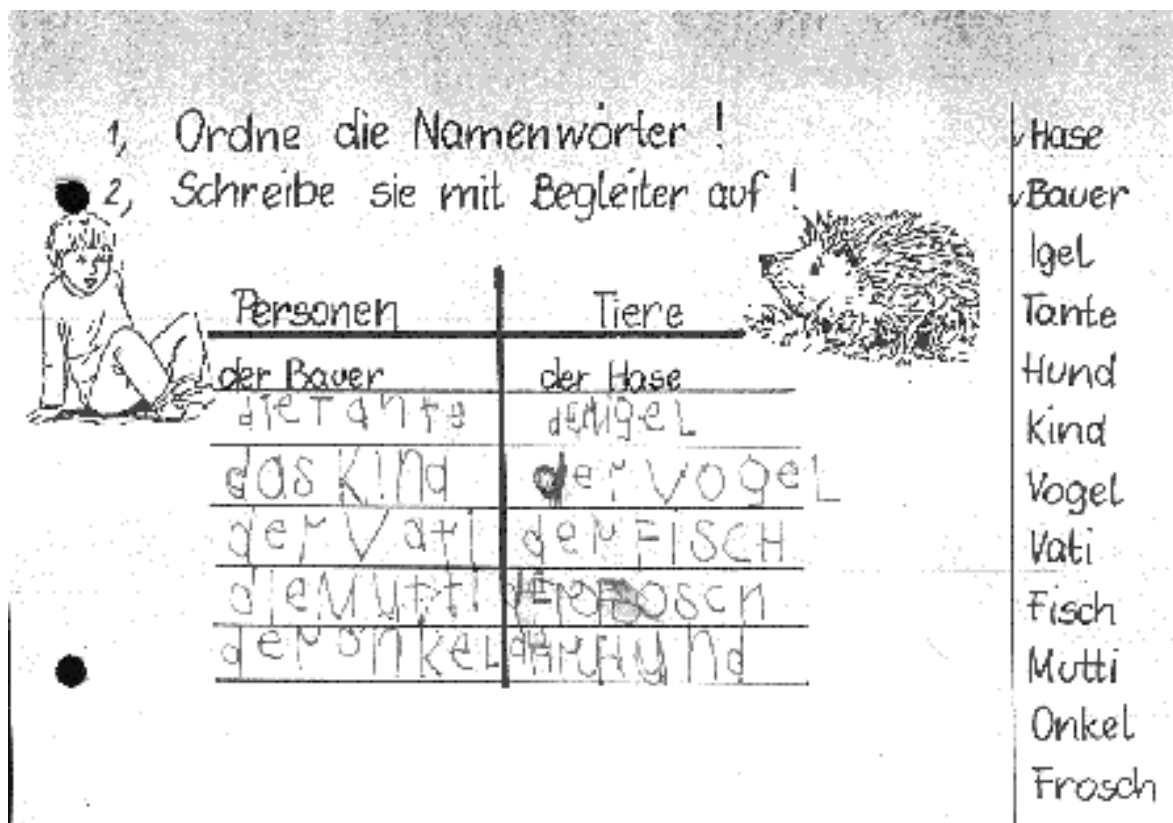 1, Ordne die Namenwörter !
2, Schreibe sie mit Begleiter auf !
Personen Tiere
der Bauer der Hase
die Tante der Igel
das Kind der VogeL
der Vati der FISCH
die Mutti
der OnkeL der Hund
Hase
Bauer
Igel
Tante
Hund
Kind
Vogel
Vati
Fisch
Mutti
Onkel
Frosch